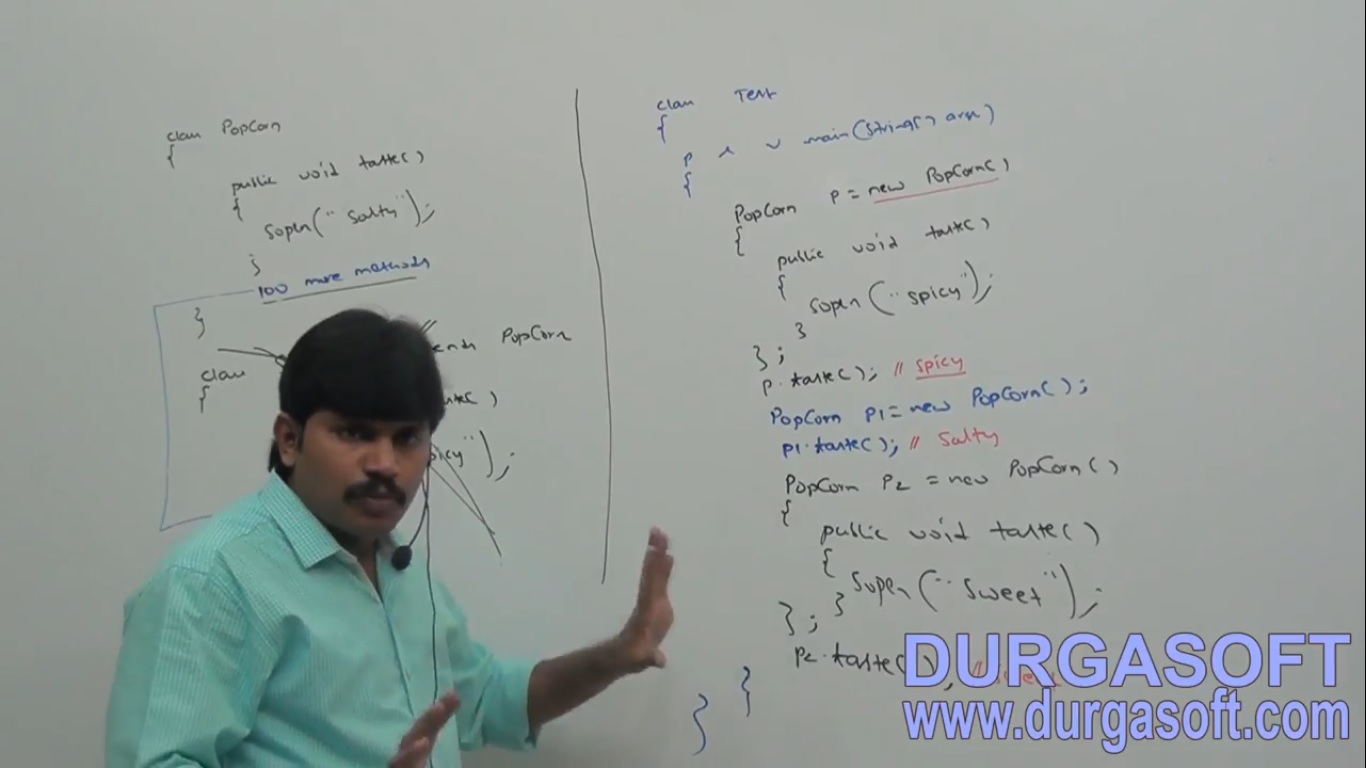 class PopCorn
{
public void taste()
{
sopln("salty");
}
100 more methods
}
class ends PopCorn
{
)
icy");
class Test
{
p s v main(String[] args)
{
PopCorn p = new PopCorn()
{
public void taste()
{
sopln("spicy");
}
};
p.taste(); // spicy
PopCorn p1 = new PopCorn();
p1.taste(); // Salty
PopCorn p2 = new PopCorn()
{
public void taste()
{
sopln("Sweet");
}
};
p2.taste();
}
}
DURGASOFT
www.durgasoft.com